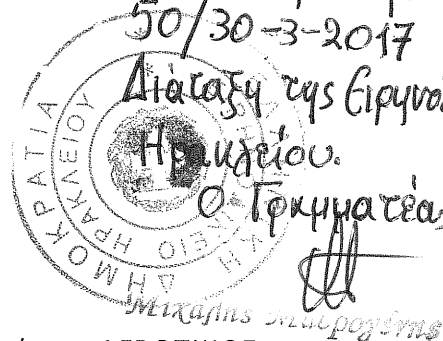 50/30-3-2017
Διάταξη της Ειρηνο
Ηρακλείου.
Ο Γραμματέας
Μιχάλης Μαυρογένης
ΔΗΜΟΚΡΑΤΙΑ
ΗΡΑΚΛΕΙΟΥ